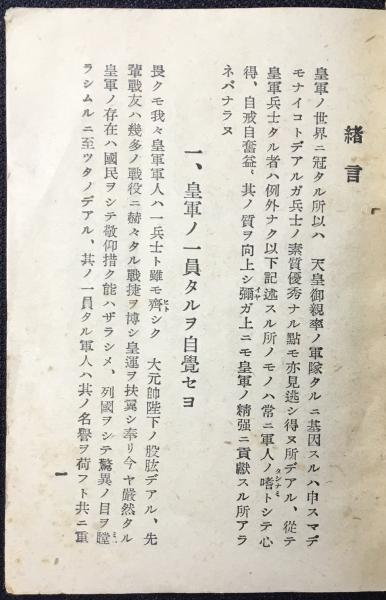 緒言
皇軍ノ世界ニ冠タル所以ハ　天皇御親率ノ軍隊タルニ基因スルハ申スマデ
モナイコトデアルガ兵士ノ素質優秀ナル點モ亦見逃シ得ヌ所デアル、從テ
皇軍兵士タル者ハ例外ナク以下記述スル所ノモノハ常ニ軍人ノ嗜タシナミトシテ心
得、自戒自奮益〻其ノ質ヲ向上シ彌イヤガ上ニモ皇軍ノ精强ニ貢獻スル所アラ
ネバナラヌ
一、皇軍ノ一員タルヲ自覺セヨ
畏クモ我々皇軍軍人ハ一兵士ト雖モ齊ヒトシク　大元帥陛下ノ股肱デアル、先
輩戰友ハ幾多ノ戰役ニ赫々タル戰捷ヲ博シ皇運ヲ扶翼シ奉リ今ヤ嚴然タル
皇軍ノ存在ハ國民ヲシテ敬仰措ク能ハザラシメ、列國ヲシテ驚異ノ目ヲ瞠ミハ
ラシムルニ至ツタノデアル、其ノ一員タル軍人ハ其ノ名譽ヲ荷フト共ニ重
一